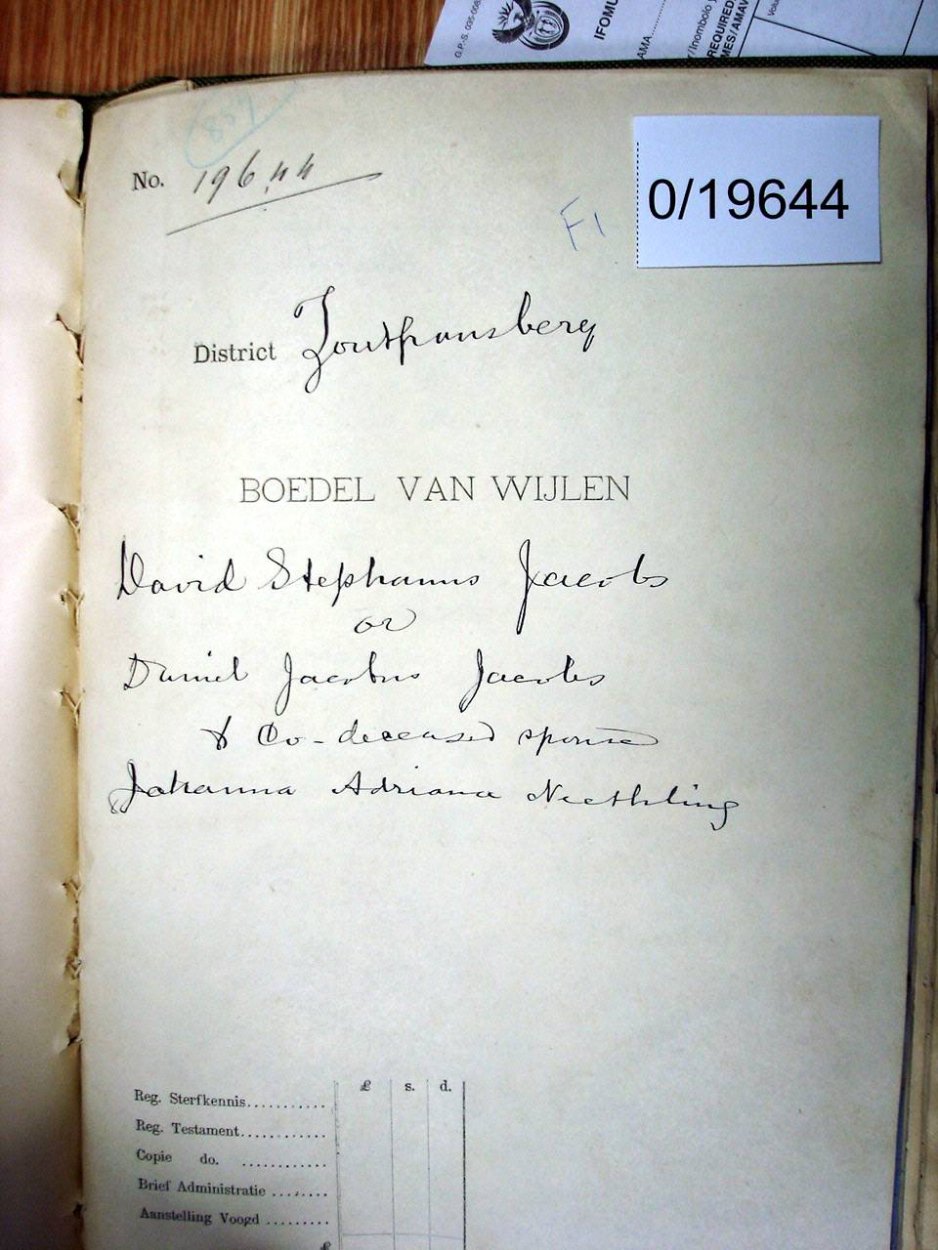 G.P.-S. 035-005
IFOMU
AMA
REQUIRED
MES/AMAV
No. 19644
0/19644
F1
District Zoutpansberg
BOEDEL VAN WIJLEN
David Stephanus Jacobs
or
Daniel Jacobus Jacobs
& Co-deceased spouse
Johanna Adriana Neethling
£ s. d.
Reg. Sterfkennis............
Reg. Testament.............
Copie do. ............
Brief Administratie ........
Aanstelling Voogd .........
£